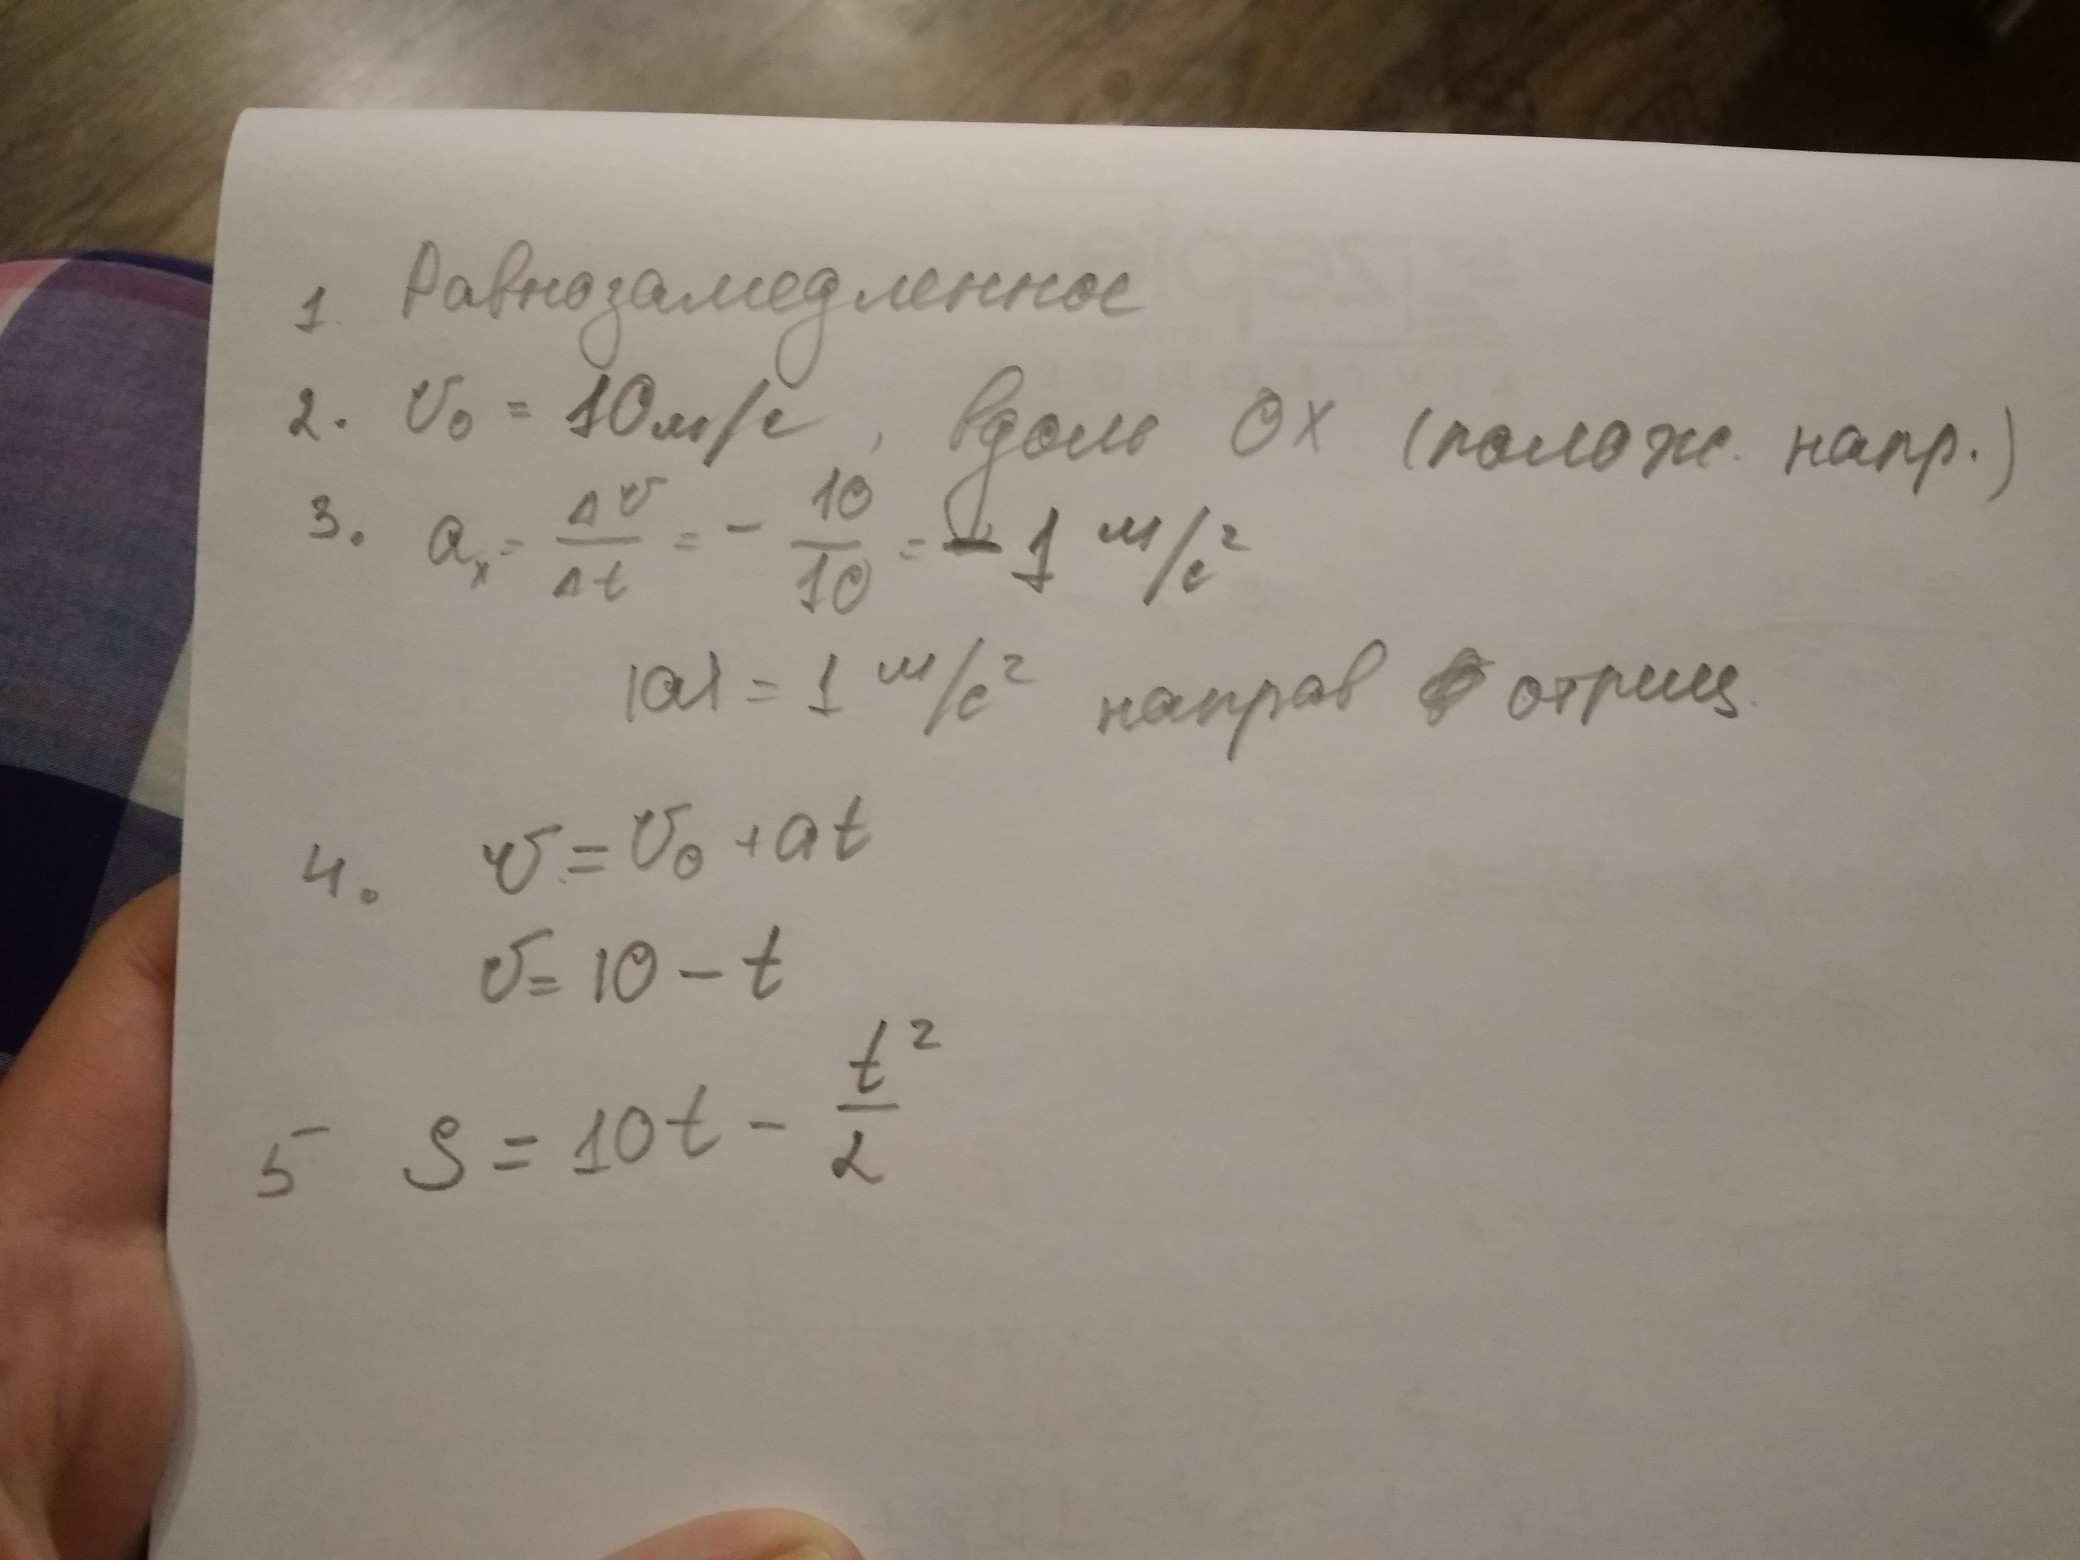 1. Равнозамедленное
2. v₀ = 10м/с, вдоль OX (полож. напр.)
3. aₓ = Δv/Δt = - 10/10 = -1 м/с²
|a| = 1 м/с² направ отриц.
4. v = v₀ + at
v = 10 - t
5 S = 10t - t²/2